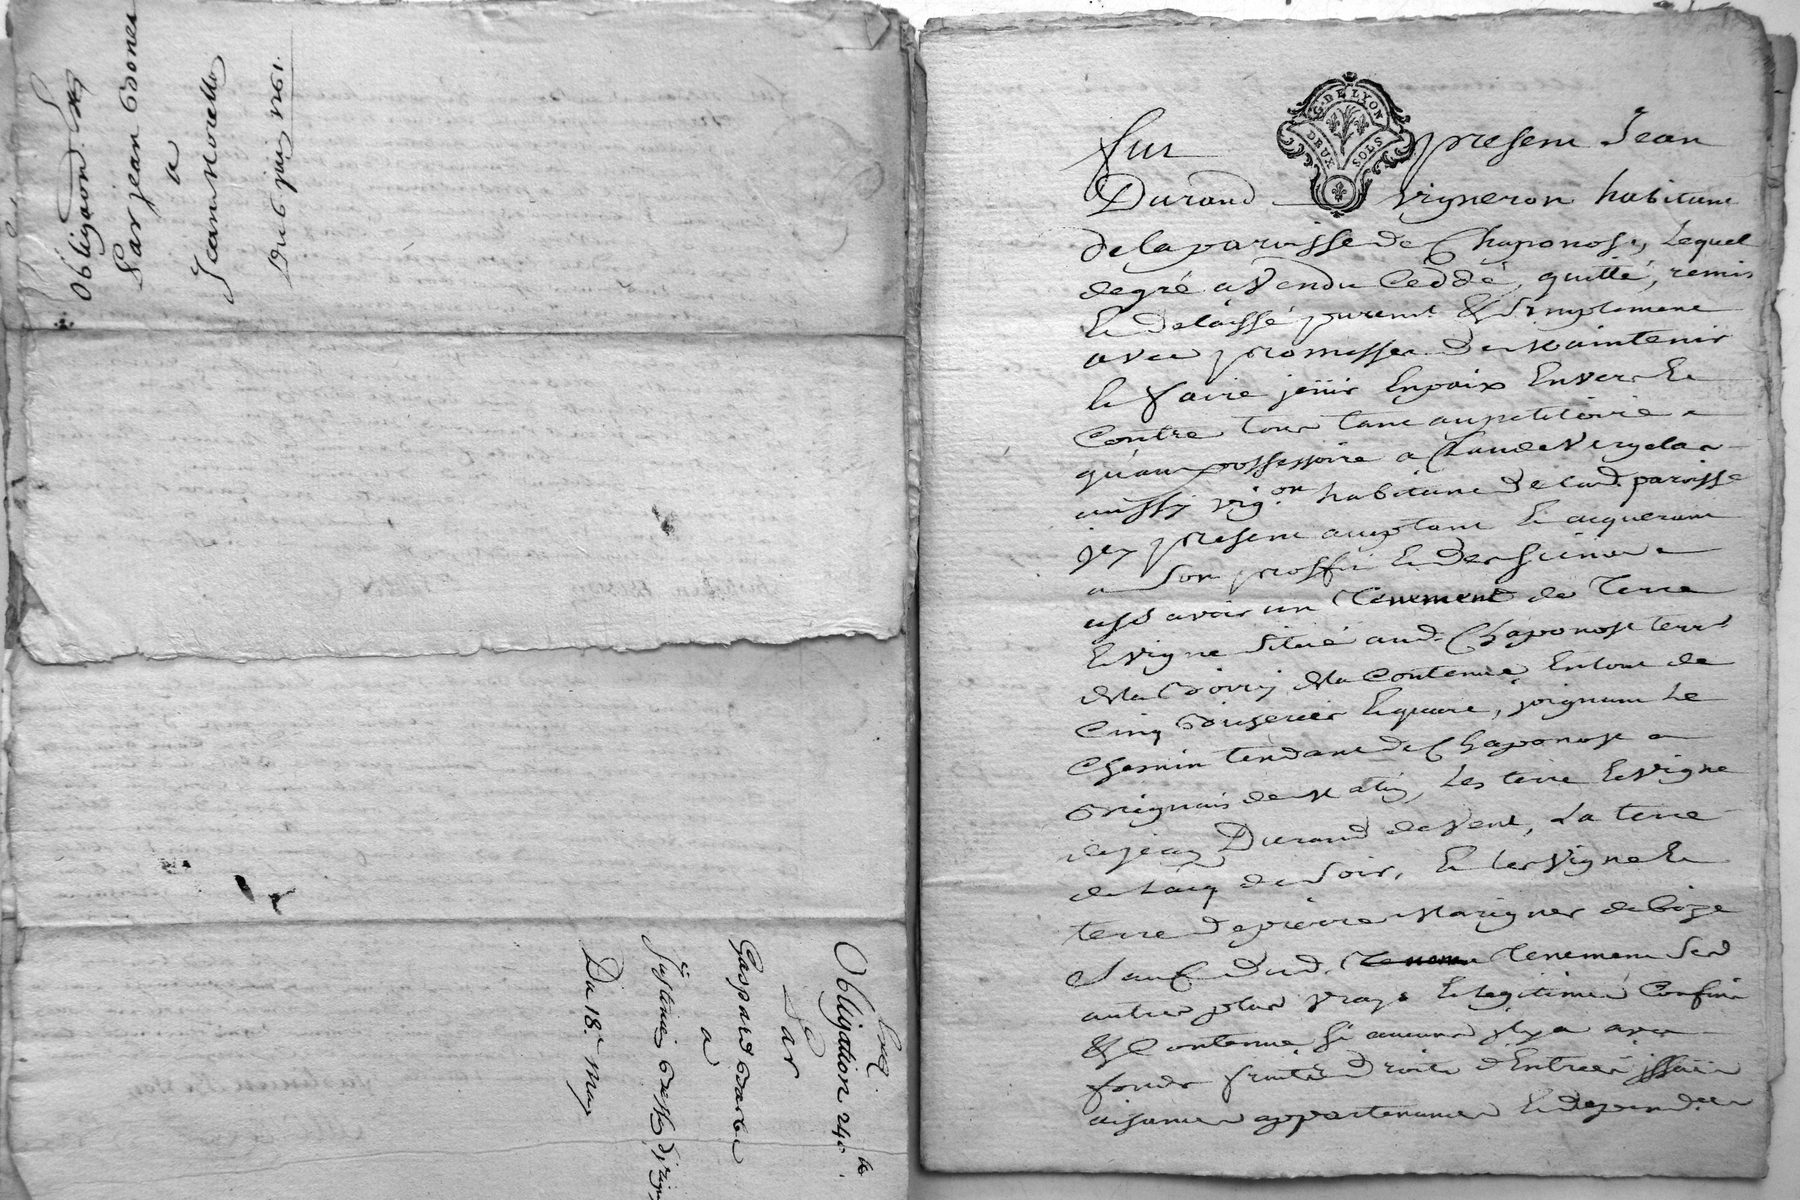 Obligaon
Par jean
a
Jean
Du 6 juin 1761.
Obligation 24
Par
Gaspard
a
Du 18e may
G. DE LYON
DEUX SOLS
Fut present Jean
Durand vigneron habitant
de la paroisse de Chaponost, Lequel
de gré a Vendu Ceddé, quitté, remis
Et delaissé puremt. & Simplement
avec promesse de Maintenir
Et faire joüir En paix Envers Et
Contre tous tant au petitoire
qu'au possessoire a Claude
aussy vig.on habitant de lad. paroisse
jcy present acceptant Et acquerant
a Son proffit Et des Siens
asçavoir un Tenement de Terre
Et vigne Situé aud. Chaponost terr.
de la de la Contenue En tout de
Cinq Enquare, joignant Le
Chemin tendant de Chaponost a
Brignais de Matin, Les terre Et vigne
de jean Durand de Vent, La terre
de de Soir, Et les Vigne Et
terre de pierre de bize
Sauf dud. Tenement Ses
autres plus vrays Et legitimes Confins
& Contenue Si aucuns il y a avec
fonds fruits droits d'Entrées jssües
aisances appartenances Et dependces